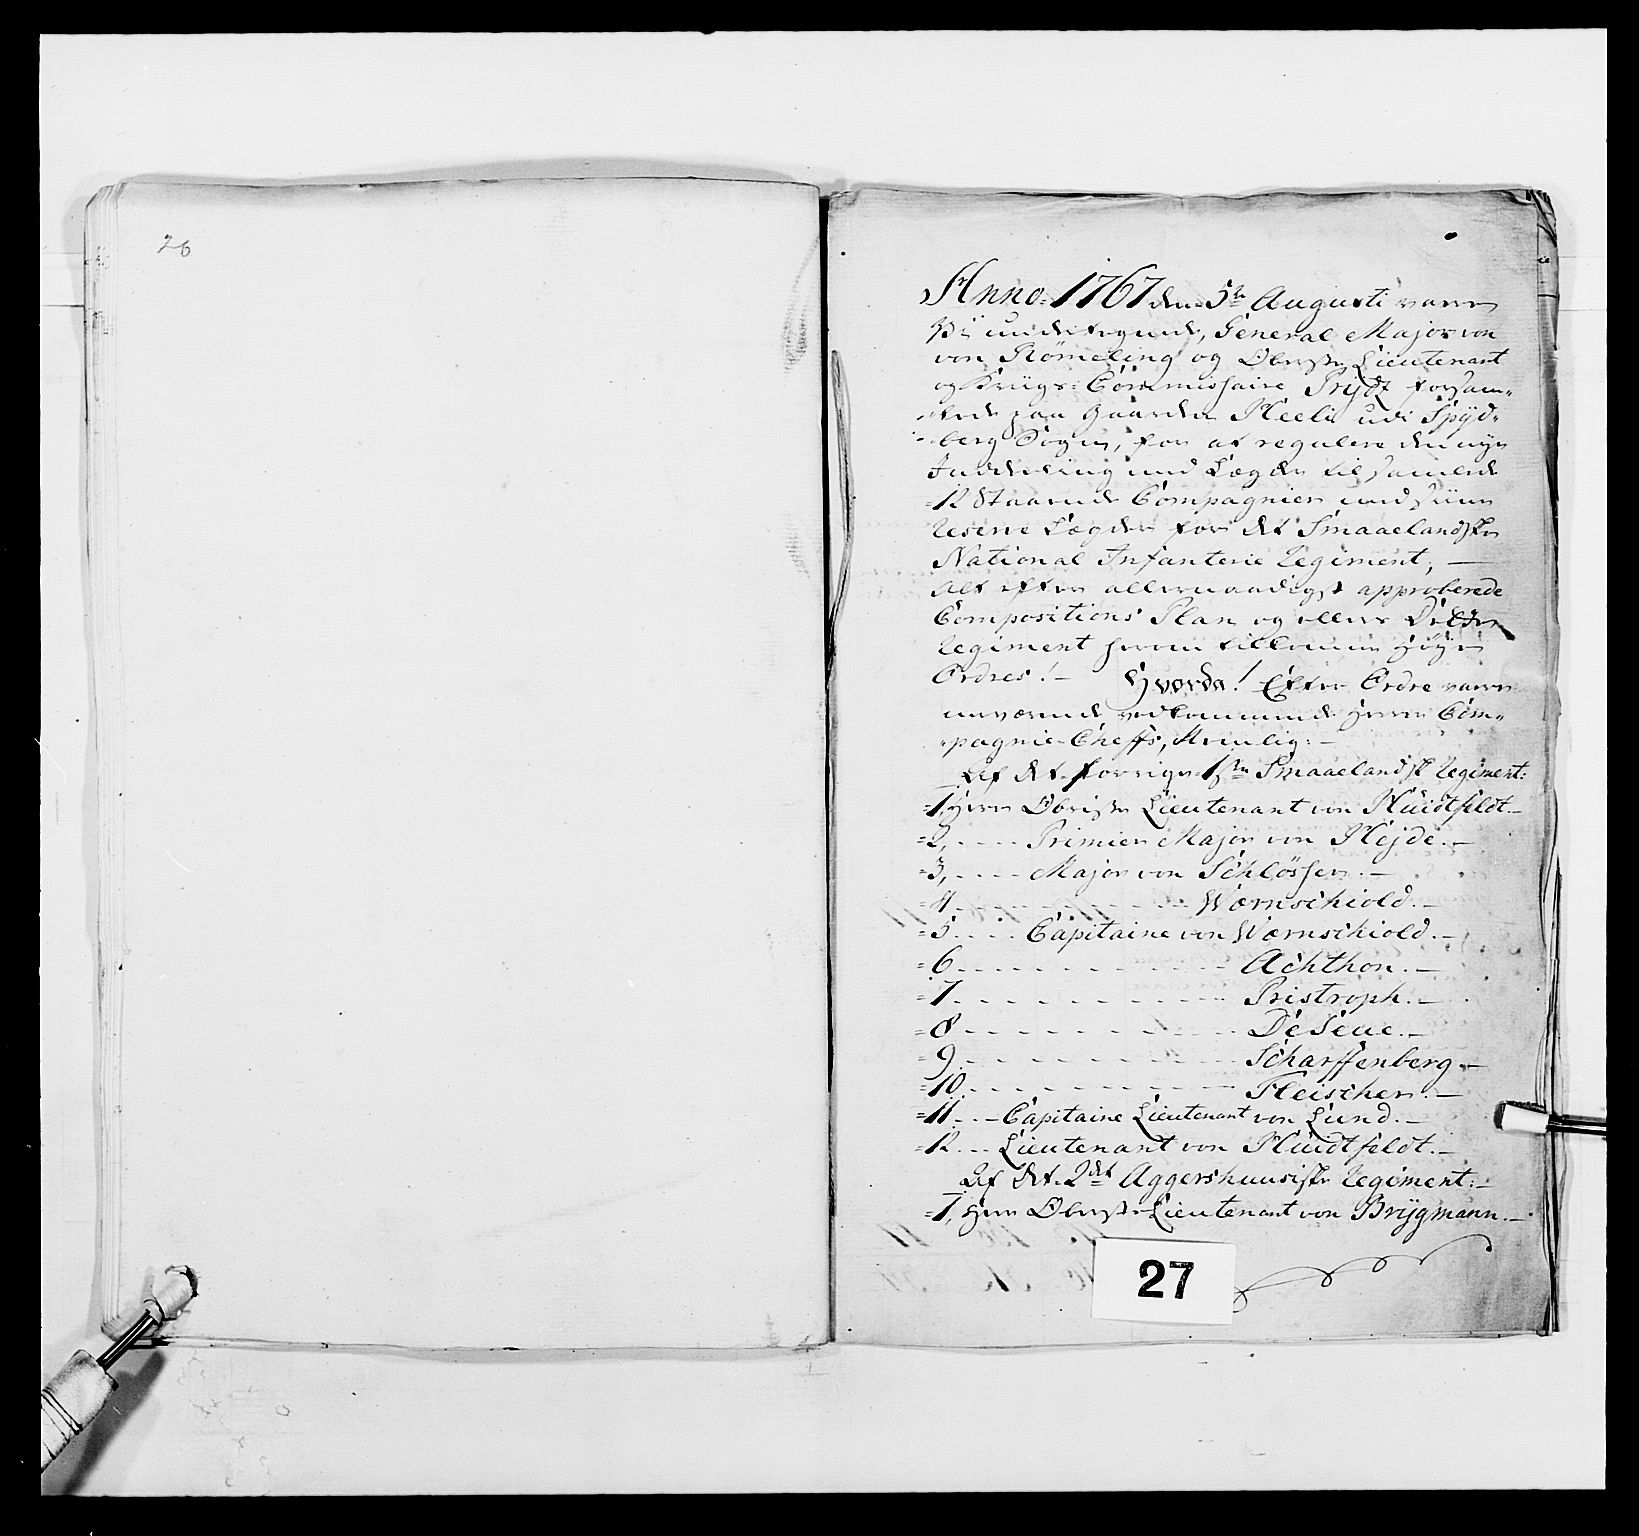 26
Anno 1767 den 5te Augusti vare
Vi undertegnede, General Major von
von Rømeling og Oberste Lieutenant
og Kriigs-Commissaire Prydz forsam-
lede paa Gaarden Heeli udi Spÿd-
berg Sogn, for at regulere den nye
Inddeeling med Lægder til samlede
12 Staaende Compagnier med sine
Reserve Lægder for det Smaaelandske
National Infanterie Regiment, —
Alt efter allernaadigst approberede
Compositions Plan og ellers
Regiment herom tilkomne høye
Ordres! — Hvorda! Efter Ordre vare
nærværende vedkommende Herrer Com-
pagnie-Cheffs, Nemlig: —
Af det forrige 1ste Smaaelandske Regiment:
1, Herr Obriste Lieutenant von Huidtfeldt. —
2, - - - - Primier Major von Hejde. —
3, - - - - Major von Schlösser. —
4 - - - - Wærnschiold. —
5 - - - - Capitaine von Wærnschiold. —
6 - - - - Achthon. —
7 - - - - Pristroph. —
8 - - - - De Seue. —
9 - - - - Scharffenberg. —
10 - - - - Fleischer. —
11 - - - Capitaine Lieutenant von Lund. —
12 - - - Lieutenant von Huidtfeldt. —
Af det 2det Aggershuusiske Regiment: —
1, Herr Oberste-Lieutenant von Brÿgmann. —
27